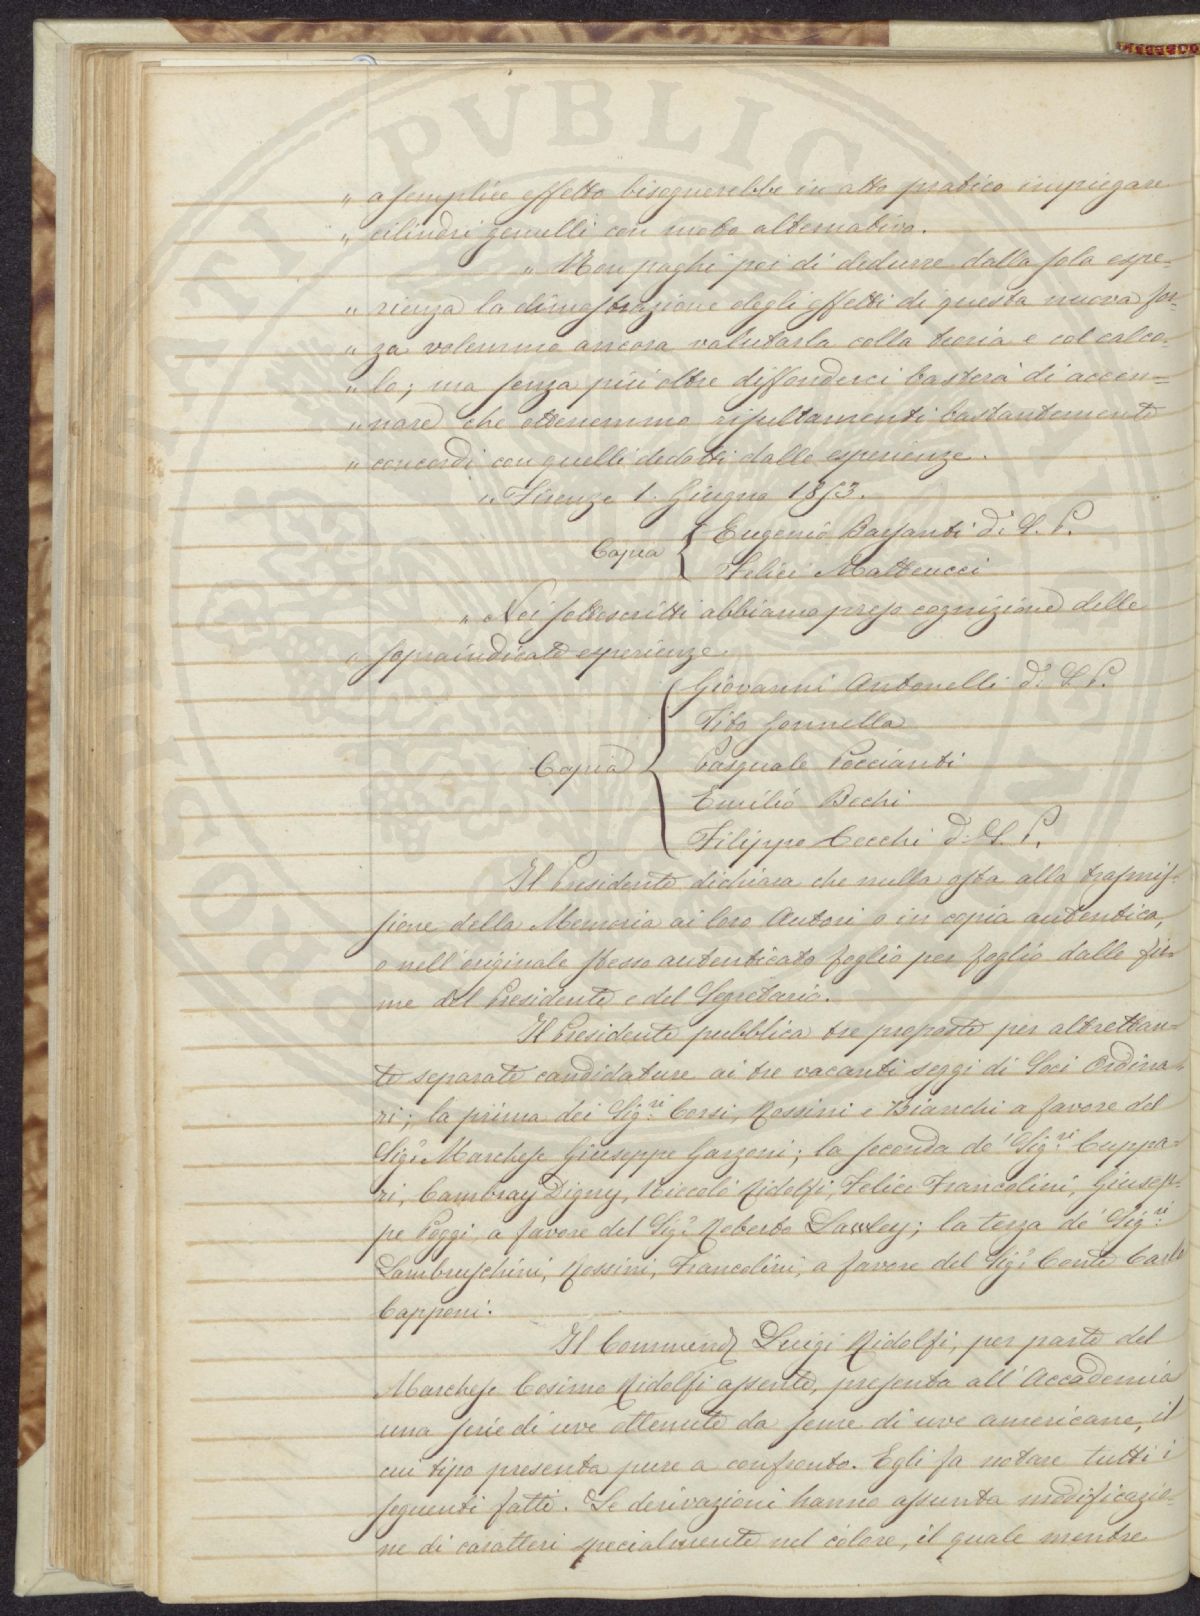 „ a semplice effetto bisognerebbe in atto pratico impiegare
„ cilindri gemelli con moto alternativo.
„ Non paghi poi di dedurre dalla sola espe=
„ rienza la dimostrazione degli effetti di questa nuova for=
„ za volemmo ancora valutarla colla teoria e col calco=
„ lo; ma senza più oltre diffonderci basterà di accen=
„ nare che ottenemmo risultamenti bastantemente
„ concordi con quelli dedotti dalle esperienze.
„ Firenze 1. Giugno 1853.
Copia { Eugenio Barsanti d. S. P.
Felice Matteucci
„ Noi sottoscritti abbiamo preso cognizione delle
„ sopraindicate esperienze.
Giovanni Antonelli d. S. P.
Tito Gonnella
Copia { Pasquale Poccianti
Emilio Bechi
Filippo Cecchi d. S. P.
Il Presidente dichiara che nulla osta alla trasmis=
sione della Memoria ai loro Autori o in copia autentica,
o nell'originale stesso autenticato foglio per foglio dalle fir=
me del Presidente e del Segretario.
Il Presidente pubblica tre proposte per altrettan=
te separate candidature ai tre vacanti seggi di Soci Ordina=
ri; la prima dei Sig.ri Corsi, Rossini e Bianchi a favore del
Sig.r Marchese Giuseppe Garzoni; la seconda de' Sig.ri Cuppa=
ri, Cambray Digny, Niccolò Ridolfi, Felice Francolini, Giusep=
pe Poggi a favore del Sig.r Roberto Lawley; la terza de' Sig.ri
Lambruschini, Rossini, Francolini, a favore del Sig.r Conte Carlo
Capponi.
Il Commend.r Luigi Ridolfi, per parte del
Marchese Cosimo Ridolfi assente, presenta all'Accademia
una serie di uve ottenute da seme di uve americane, il
cui tipo presenta pure a confronto. Egli fa notare tutti i
seguenti fatti. Le derivazioni hanno assunta modificazio=
ne di caratteri specialmente nel colore, il quale mentre